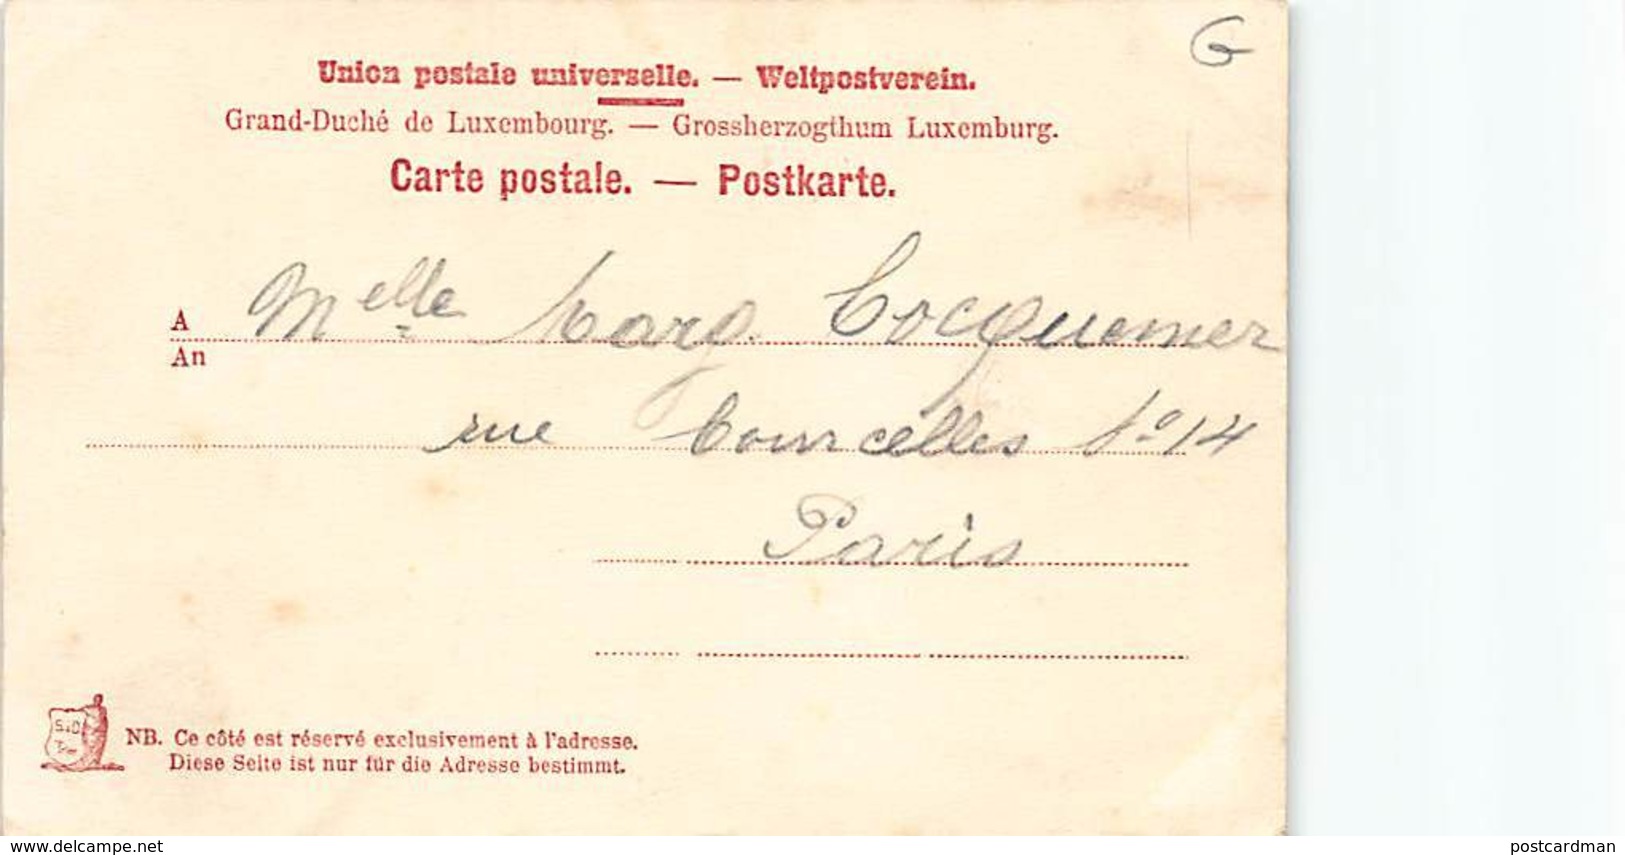 G
Union postale universelle. — Weltpostverein.
Grand-Duché de Luxembourg. — Grossherzogthum Luxemburg.
Carte postale. — Postkarte.
A Melle Marg. Cocquemer
An
rue Courcelles No 14
Paris
NB. Ce côté est réservé exclusivement à l'adresse.
Diese Seite ist nur für die Adresse bestimmt.
www.delcampe.net
postcardman